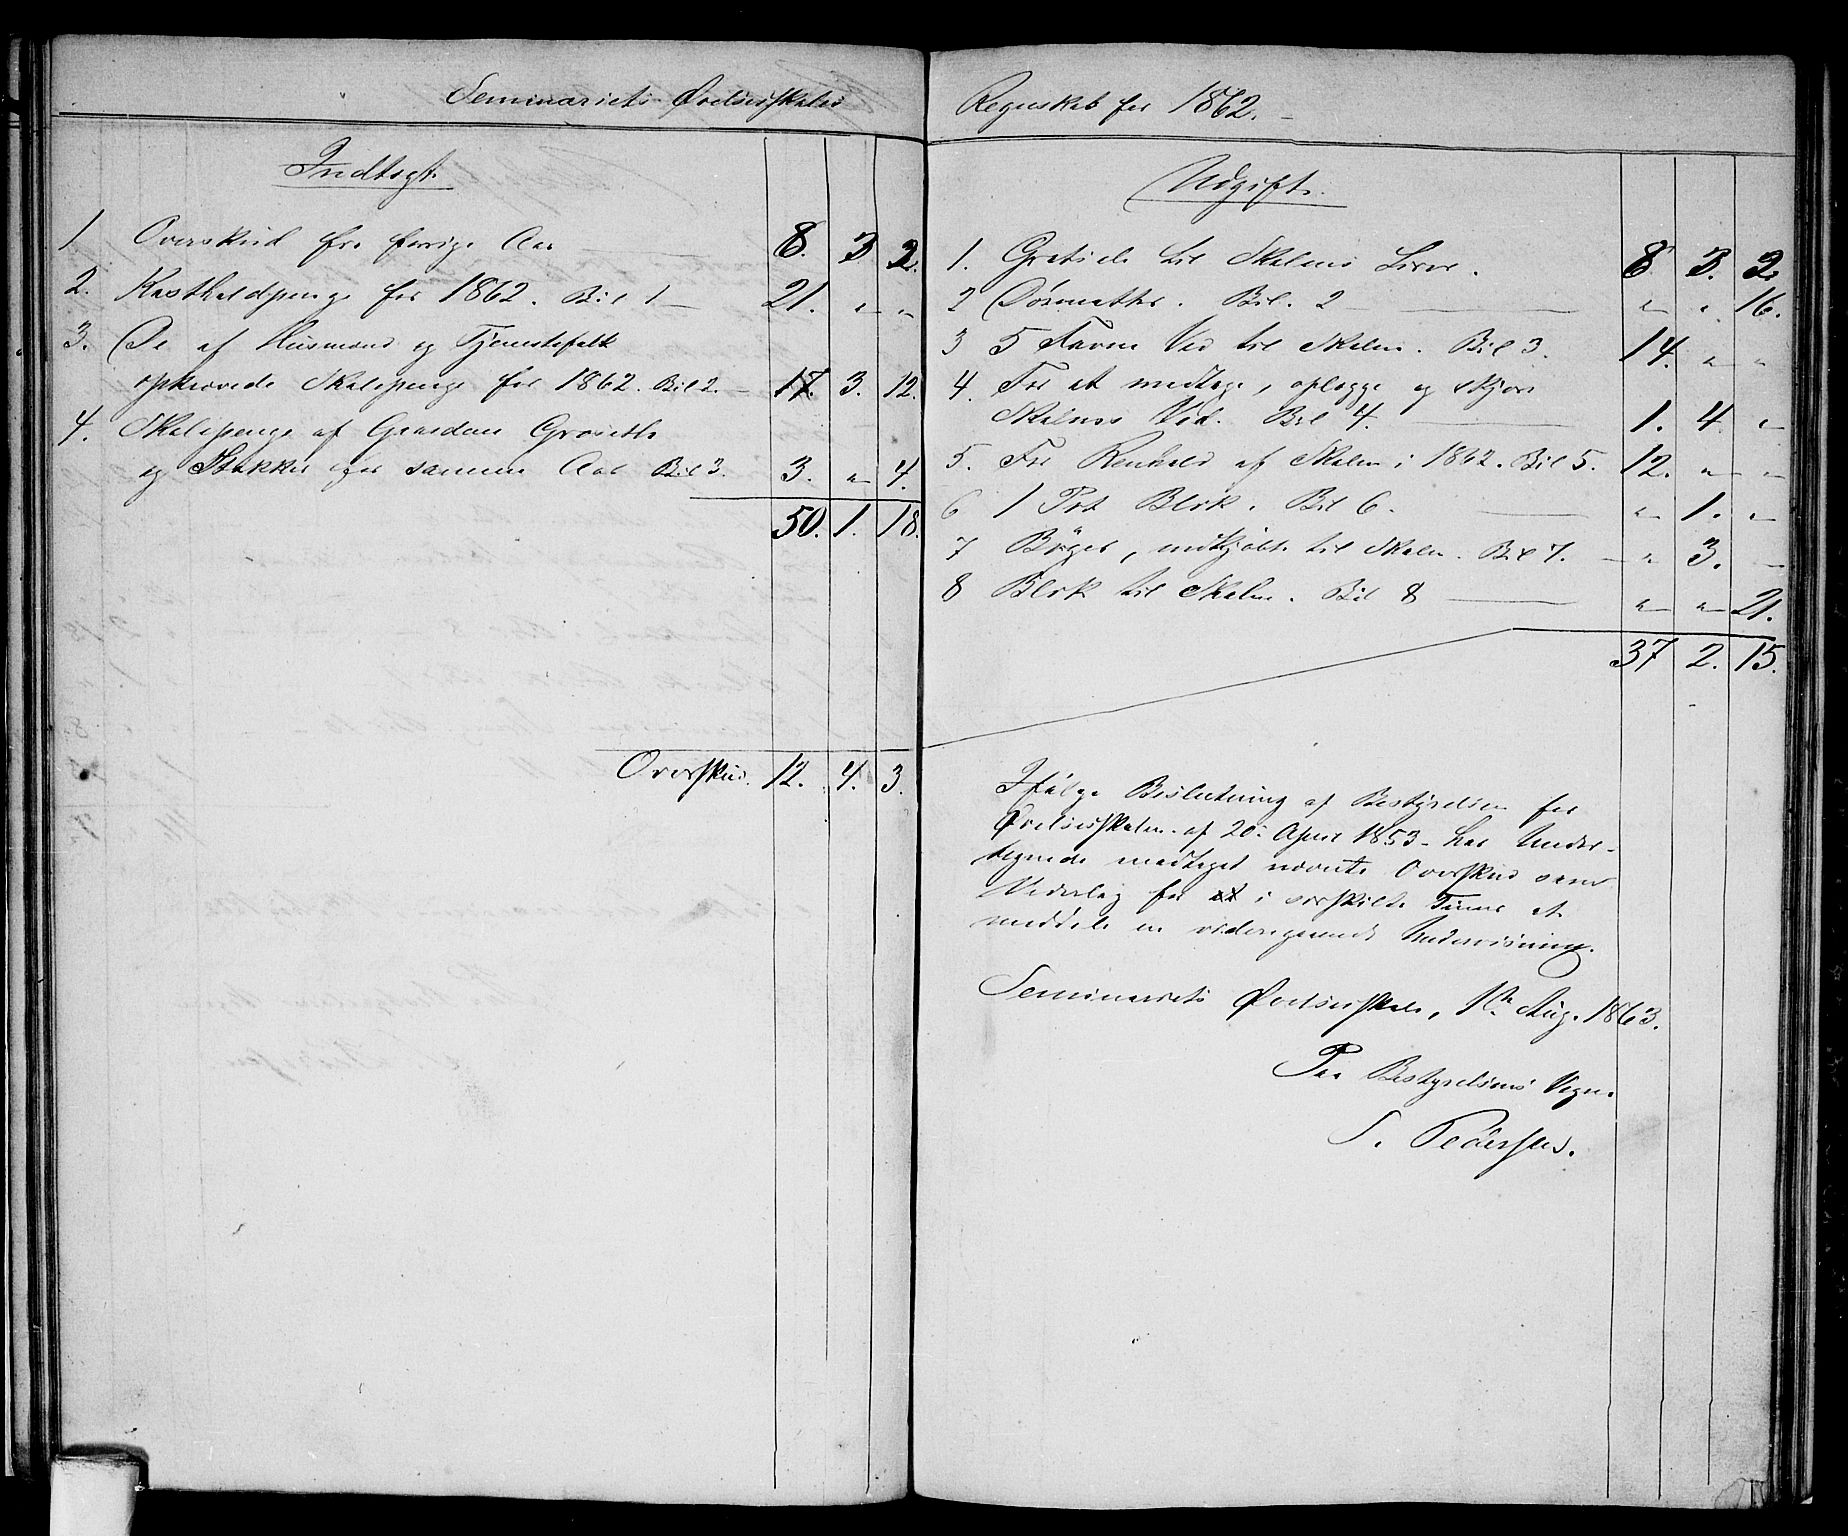 Seminariets Øvelsesskoles
Indtægt.
1 Overskud fra forrige Aar 8. 3 2.
2. Kostholdspenge for 1862. Bil 1 — 21. " "
3. De af Husmænd og Tjenestefolk
opkrævede Skolepenge for 1862. Bil 2. — 17. 3. 12.
4. Skolepenge af Gaardene Groseth
og Stokke for samme Aar Bil 3. 3. " 4.
50. 1. 18.
Overskud. 12. 4. 3.
Regnskab for 1862. —
Udgift.
1. Gratiale til Skolens Lærer. 8. 3. 2
2 Dörmatter. Bil. 2 — " " 16.
3 5 Favne Ved til Skolen. Bil 3. 14. " "
4. For at modtage, oplægge og skjære
Skolens Ved. Bil 4. 1. 4 "
5. For Renhold af Skolen i 1862. Bil 5. 12. " "
6 1 Pot Blæk. Bil 6. — " 1. "
7 Böger, indkjöbte til Skolen. Bil 7. — " 3. —
8 Blæk til Skolen. Bil 8 — " " 21.
37 2. 15.
Ifölge Beslutning af Bestyrelsen for
Øvelsesskolen af 20: April 1853 – har Under-
tegnede modtaget nævnte Overskud som
Vederlag for at i særskilte Timer at
meddele en videregaaende Undervisning.
Seminariets Øvelsesskole, 1ste Aug. 1863.
Paa Bestyrelsens Vegne
S. Pedersen.